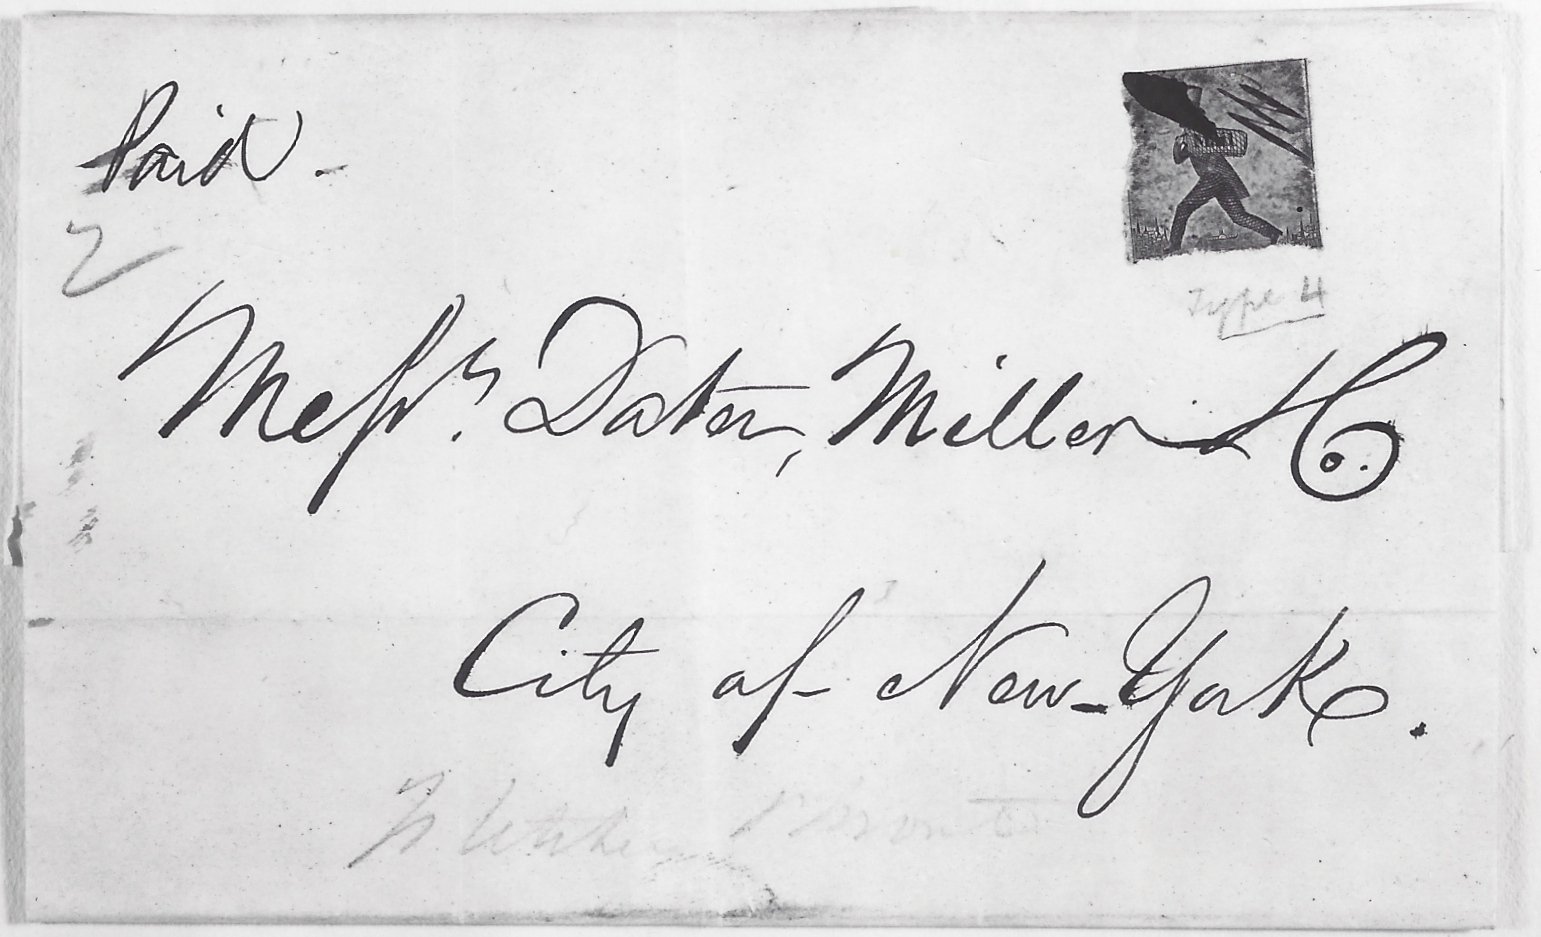 Paid.
2
Type 4
Messrs. Dater, Miller & Co.
City of New-York.